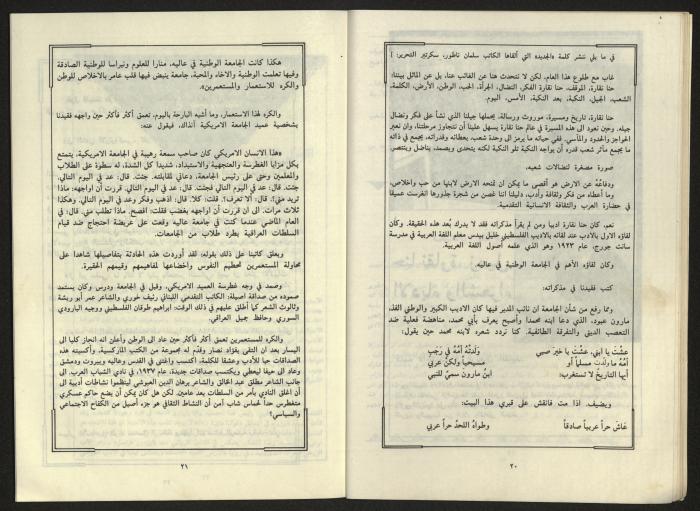 في ما يلي ننشر كلمة «الجديد» التي ألقاها الكاتب سلمان ناطور، سكرتير التحرير: ]
غاب مع طلوع هذا العام، لكن لا نتحدث هنا عن الغائب عنا، بل عن الماثل بيننا:
حنا نقارة، الموقف، حنا نقارة الفكر، النضال، الجرأة، الحب، الوطن، الأرض، الكلمة،
الشعب، الجيل، النكبة، بعد النكبة، الأمس، اليوم.
حنا نقارة، تاريخ ومسيرة، موروث ورسالة، يحملها جيلنا الذي نشأ على فكر ونضال
جيله. وحين نعود الى هذه المسيرة في عالم حنا نقارة يسهل علينا أن نتجاوز مرحلتنا، وان نعبر
الحواجز والحدود والمآسي. ففي حياته ما يرمز الى وحدة شعبه، بعطائه وقدراته، يجمع في ذاته
ما يجمع مآثر شعب قدره أن يواجه النكبة تلو النكبة لكنه يتحدى ويصمد، يناضل وينتصر.
صورة مصغرة لنضالات شعبه.
ودفاعُه عن الارض هو أقصى ما يمكن ان تمنحه الارض لابنها من حب واخلاص،
وما أعطاه من فكر وثقافة وأدب، دليلنا اننا غصن من شجرة جذورها انغرست عميقاً
في حضارة العرب والثقافة الانسانية التقدمية.
نعم، كان حنا نقارة أديبا ومن لم يقرأ مذكراته فقد لا يدرك بُعد هذه الحقيقة. وكان
لقاؤه الأول بالادب عند لقائه بالاديب الفلسطيني خليل بيدس معلم اللغة العربية في مدرسة
سانت جورج، عام ١٩٢٣ وهو الذي علمه أصول اللغة العربية.
وكان لقاؤه الأهم في الجامعة الوطنية في عاليه.
كتب فقيدنا في مذكراته:
ومما رفع من شأن الجامعة ان نائب المدير فيها كان الاديب الكبير والوطني الفذ،
مارون عبود، الذي دعا ابنه محمداً وأصبح يعرف بأبي محمد، مناهضة فعلية ضد
التعصب الديني والتفرقة الطائفية. كنا نردد شعره لابنه محمد حين يقول:
عشْتَ يا ابني، عشت يا خير صبي   ولدتْهُ أمُّه في رجبِ
أمُّهُ ما ولدت مسلماً أو   مسيحياً ولكنْ عربي
أيها التاريخُ لا تستغرب:   ابنُ مارون سميُّ للنبي
ويضيف. اذا مت فانقش على قبري هذا البيت:
عاش حراً عربياً صادقاً   وطواهُ اللحدُ حراً عربي
٢٠
هكذا كانت الجامعة الوطنية في عاليه، منارا للعلوم ونبراسا للوطنية الصادقة
وفيها تعلمت الوطنية والاخاء والمحبة، جامعة ينبض فيها قلب عامر بالاخلاص للوطن
والكره للاستعمار والمستعمرين».
والكره لهذا الاستعمار، وما أشبه البارحة باليوم، تعمق أكثر فأكثر حين واجهه فقيدنا
بشخصية عميد الجامعة الامريكية آنذاك، فيقول عنه:
«هذا الانسان الامريكي كان صاحب سمعة رهيبة في الجامعة الامريكية، يتمتع
بكل مزايا الغطرسة والعنجهية والاستبداد، شديدا كل الشدة، له سطوة على الطلاب
والمعلمين وحتى على رئيس الجامعة، دعاني لمقابلته. جئت. قال: عد في اليوم التالي.
جئت. قال: عد في اليوم التالي فجئت. قال: عد في اليوم التالي. قررت أن اواجهه: ماذا
تريد مني؟. قال: ألا تعرف؟. قلت: كلا. قال: اذهب وفكر وعد في اليوم التالي. وهكذا
ثلاث مرات. الى ان قررت أن أواجهه بغضب فقلت: افصح. ماذا تطلب مني. قال: في
العام الماضي عندما كنت في جامعة عاليه وقعت على عريضة احتجاج ضد قيام
السلطات العراقية بطرد طلاب من الجامعات.
ويعلق كاتبنا على ذلك بقوله: لقد أوردت هذه الحادثة بتفاصيلها شاهدا على
محاولة المستعمرين تحطيم النفوس واخضاعها لمفاهيمهم وقيمهم الحقيرة.
وصمد في وجه غطرسة العميد الامريكي، وبقي في الجامعة ودرس وكان يستمد
صموده من صداقة اصيلة: الكاتب التقدمي اللبناني رئيف خوري والشاعر عمر أبو ريشة
وثالوث الشعر كما أطلق عليهم في ذلك الوقت: ابراهيم طوقان الفلسطيني ووجيه البارودي
السوري وحافظ جميل العراقي.
والكره للمستعمرين تعمق أكثر فأكثر حين عاد الى الوطن وأعلن انه انحاز كليا الى
اليسار بعد ان التقى بفؤاد نصار وقدّم له مجموعة من الكتب الماركسية، وأكسبته هذه
الصداقات حبا للأدب وعشقا للكلمة، اكتسب وافتنى في القدس وعاليه وبيروت ودمشق
وعاد الى حيفا ليعطي ويكتسب صداقات جديدة، عام ١٩٣٧، في نادي الشباب العرب، الى
جانب الشاعر مطلق عبد الخالق والشاعر برهان الدين العبوشي لينظموا نشاطات أدبية الى
أن اغلق النادي بأمر من السلطات بعد عامين. لكن هل كان يمكن أن يضع حاكم عسكري
متغطرس حداً لحماس شاب آمن أن النشاط الثقافي هو جزء أصيل من الكفاح الاجتماعي
والسياسي؟
٢١